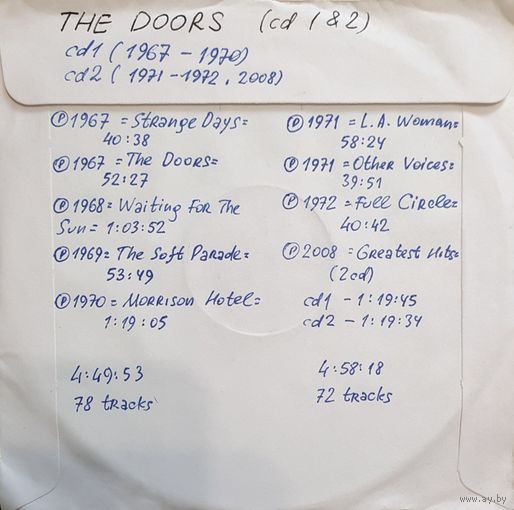 THE DOORS (cd 1 & 2)
cd1 (1967 - 1970)
cd2 (1971-1972, 2008)
℗ 1967 = Strange Days =
40:38
℗ 1967 = The Doors =
52:27
℗ 1968 = Waiting For The
Sun = 1:03:52
℗ 1969 = The Soft Parade =
53:49
℗ 1970 = Morrison Hotel =
1:19:05
4:49:53
78 tracks
℗ 1971 = L.A. Woman =
58:24
℗ 1971 = Other Voices =
39:51
℗ 1972 = Full Circle =
40:42
℗ 2008 = Greatest Hits =
(2cd)
cd1 - 1:19:45
cd2 - 1:19:34
4:58:18
72 tracks
www.ay.by